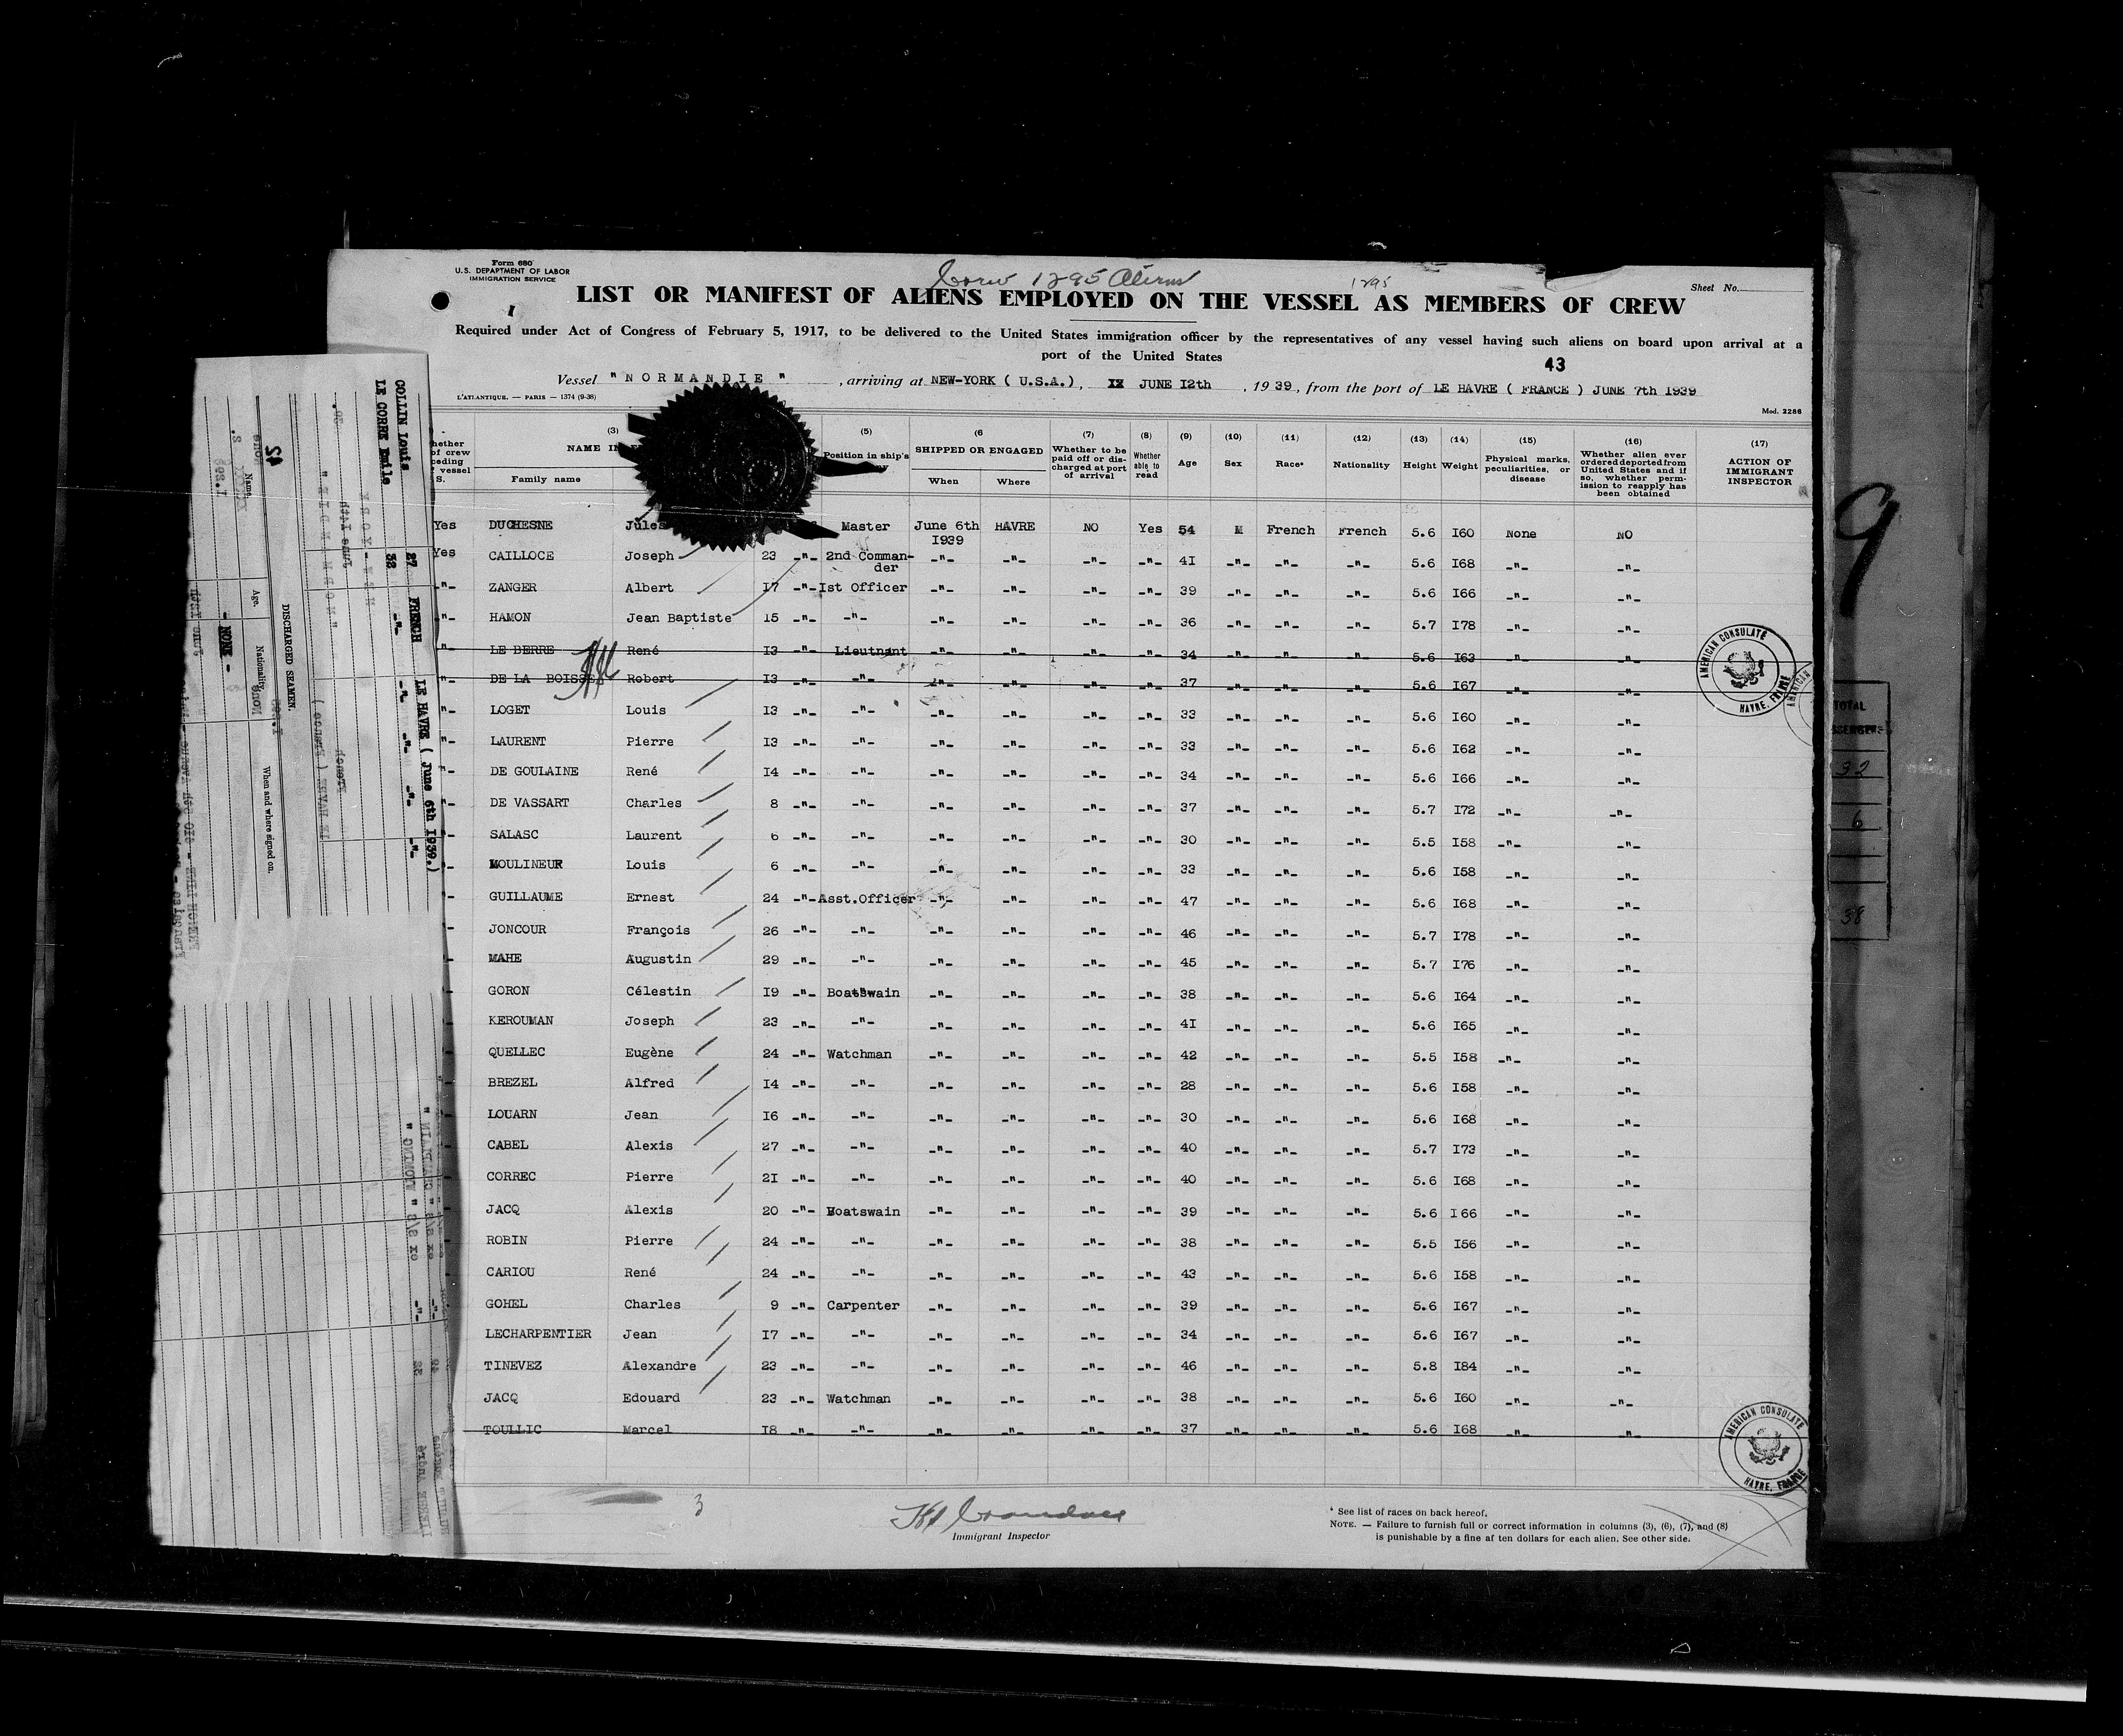 Form 680
U.S. DEPARTMENT OF LABOR
IMMIGRATION SERVICE
Crew 1295 Aliens
1295
Sheet No.
I
LIST OR MANIFEST OF ALIENS EMPLOYED ON THE VESSEL AS MEMBERS OF CREW
Required under Act of Congress of February 5, 1917, to be delivered to the United States immigration officer by the representatives of any vessel having such aliens on board upon arrival at a
port of the United States
43
Vessel "NORMANDIE", arriving at NEW-YORK ( U.S.A.), JUNE I2th, 1939, from the port of LE HAVRE ( FRANCE ) JUNE 7th I939
L'ATLANTIQUE. — PARIS — 1374 (9-38)
Mod. 2286
(3) (5) (6 (7) (8) (9) (10) (11) (12) (13) (14) (15) (16) (17)
hether of crew vessel S.
NAME IN
Family name
Position in ship's
SHIPPED OR ENGAGED
When
Where
Whether to be paid off or discharged at port of arrival
Whether able to read
Age
Sex
Race*
Nationality
Height
Weight
Physical marks, peculiarities, or disease
Whether alien ever ordered deported from United States and if so, whether permission to reapply has been obtained
ACTION OF IMMIGRANT INSPECTOR
Yes DUCHESNE Jules Master June 6th I939 HAVRE NO Yes 54 M French French 5.6 I60 None NO
Yes CAILLOCE Joseph 23 -"- 2nd Comman-der -"- -"- -"- -"- 4I -"- -"- -"- 5.6 I68 -"- -"-
"- ZANGER Albert I7 -"- Ist Officer -"- -"- -"- -"- 39 -"- -"- -"- 5.6 I66 -"- -"-
"- HAMON Jean Baptiste I5 -"- -"- -"- -"- -"- -"- 36 -"- -"- -"- 5.7 I78 -"- -"-
"- LE BERRE René I3 -"- Lieutnant -"- -"- -"- -"- 34 -"- -"- -"- 5.6 I63 -"- -"-
"- DE LA BOISSE Robert I3 -"- -"- -"- -"- -"- -"- 37 -"- -"- -"- 5.6 I67 -"- -"-
"- LOGET Louis I3 -"- -"- -"- -"- -"- -"- 33 -"- -"- -"- 5.6 I60 -"- -"-
"- LAURENT Pierre I3 -"- -"- -"- -"- -"- -"- 33 -"- -"- -"- 5.6 I62 -"- -"-
"- DE GOULAINE René I4 -"- -"- -"- -"- -"- -"- 34 -"- -"- -"- 5.6 I66 -"- -"-
"- DE VASSART Charles 8 -"- -"- -"- -"- -"- -"- 37 -"- -"- -"- 5.7 I72 -"- -"-
"- SALASC Laurent 6 -"- -"- -"- -"- -"- -"- 30 -"- -"- -"- 5.5 I58 -"- -"-
"- MOULINEUR Louis 6 -"- -"- -"- -"- -"- -"- 33 -"- -"- -"- 5.6 I58 -"- -"-
"- GUILLAUME Ernest 24 -"- Asst.Officer -"- -"- -"- -"- 47 -"- -"- -"- 5.6 I68 -"- -"-
"- JONCOUR François 26 -"- -"- -"- -"- -"- -"- 46 -"- -"- -"- 5.7 I78 -"- -"-
"- MAHE Augustin 29 -"- -"- -"- -"- -"- -"- 45 -"- -"- -"- 5.7 I76 -"- -"-
- GORON Célestin I9 -"- Boatswain -"- -"- -"- -"- 38 -"- -"- -"- 5.6 I64 -"- -"-
- KEROUMAN Joseph 23 -"- -"- -"- -"- -"- -"- 4I -"- -"- -"- 5.6 I65 -"- -"-
- QUELLEC Eugène 24 -"- Watchman -"- -"- -"- -"- 42 -"- -"- -"- 5.5 I58 -"- -"-
- BREZEL Alfred I4 -"- -"- -"- -"- -"- -"- 28 -"- -"- -"- 5.6 I58 -"- -"-
- LOUARN Jean I6 -"- -"- -"- -"- -"- -"- 30 -"- -"- -"- 5.6 I68 -"- -"-
- CABEL Alexis 27 -"- -"- -"- -"- -"- -"- 40 -"- -"- -"- 5.7 I73 -"- -"-
- CORREC Pierre 2I -"- -"- -"- -"- -"- -"- 40 -"- -"- -"- 5.6 I68 -"- -"-
- JACQ Alexis 20 -"- Boatswain -"- -"- -"- -"- 39 -"- -"- -"- 5.6 I66 -"- -"-
- ROBIN Pierre 24 -"- -"- -"- -"- -"- -"- 38 -"- -"- -"- 5.5 I56 -"- -"-
- CARIOU René 24 -"- -"- -"- -"- -"- -"- 43 -"- -"- -"- 5.6 I58 -"- -"-
GOHEL Charles 9 -"- Carpenter -"- -"- -"- -"- 39 -"- -"- -"- 5.6 I67 -"- -"-
LECHARPENTIER Jean I7 -"- -"- -"- -"- -"- -"- 34 -"- -"- -"- 5.6 I67 -"- -"-
TINEVEZ Alexandre 23 -"- -"- -"- -"- -"- -"- 46 -"- -"- -"- 5.8 I84 -"- -"-
JACQ Edouard 23 -"- Watchman -"- -"- -"- -"- 38 -"- -"- -"- 5.6 I60 -"- -"-
TOULLIC Marcel I8 -"- -"- -"- -"- -"- -"- 37 -"- -"- -"- 5.6 I68 -"- -"-
AMERICAN CONSULATE
HAVRE, FRANCE
AMERICAN CONSULATE
HAVRE, FRANCE
3
Immigrant Inspector
* See list of races on back hereof.
NOTE. — Failure to furnish full or correct information in columns (3), (6), (7), and (8)
is punishable by a fine af ten dollars for each alien. See other side.
LE HAVRE ( June 6th I939.)
COLLIN Louis 27 FRENCH -"- -"-
LE CORRE Emile 32 -"- -"- -"-
DISCHARGED SEAMEN.
42
Name. Age. Nationality. When and where signed on.
- NONE -
9
TOTAL
32
6
38